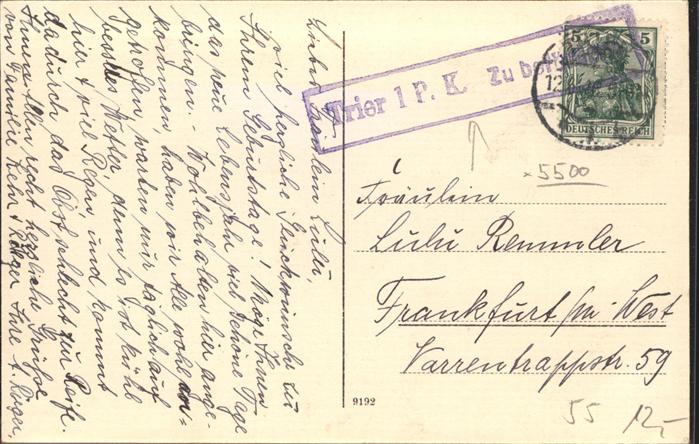 Liebes Fräulein Lulu,
viel herzliche Glückwünsche zu
Ihrem Geburtstage! Möge Ihnen
das neue Lebensjahr viel schöne Tage
bringen. - Wohlbehalten hier ange-
kommen haben wir Alle wohl an-
getroffen, warten nur täglich auf
Wetter, denn es ist kühl
hier & viel Regen, und kommt
dadurch das Obst schlecht zur Reife.
Ihnen Allen recht herzliche Grüße
von Familie
Trier 1 P. K. Zu be
5 5
DEUTSCHES REICH
12
x 5500
Fräulein
Lulu Remmler
Frankfurt /M - West
Varrentrappstr. 59
9192
55 12,-